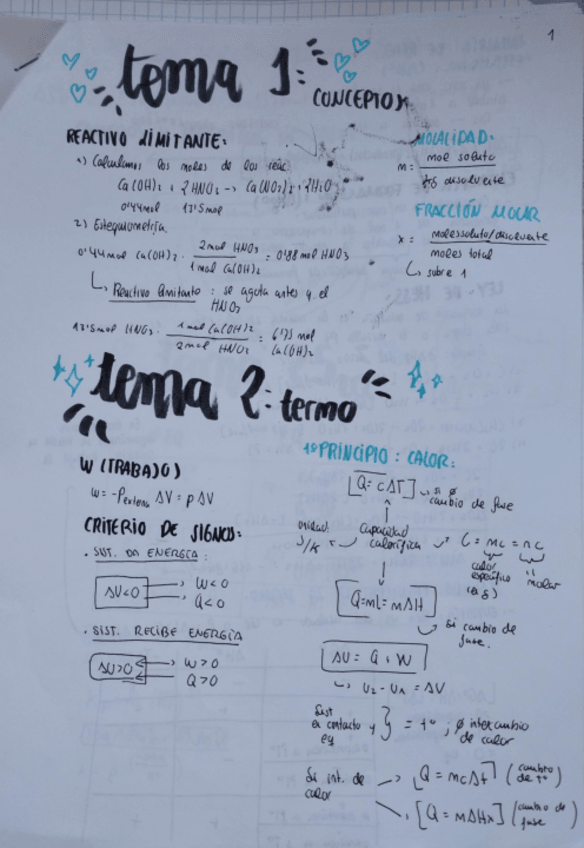 1
tema 1: CONCEPTOS
REACTIVO LIMITANTE:
1) Calculamos los moles de los reac.
Ca(OH)₂ + 2HNO₃ -> Ca(NO₃)₂ + 2H₂O
0'44mol 13'5mol
2) Estequiometría.
0'44mol Ca(OH)₂ · 2mol HNO₃ / 1mol Ca(OH)₂ = 0'88 mol HNO₃
Reactivo limitante : se agota antes y el
HNO₃
13'5mol HNO₃ · 1mol Ca(OH)₂ / 2mol HNO₃ = 6'75 mol Ca(OH)₂
MOLALIDAD:
m = mol soluto / kg disolvente
FRACCIÓN MOLAR
x = moles soluto/disolvente / moles total
↳ sobre 1
tema 2: termo
W (TRABAJO)
W = -Pexterna ΔV = p ΔV
CRITERIO DE SIGNOS:
· SIST. DA ENERGÍA:
ΔU<0 → W<0
→ Q<0
· SIST. RECIBE ENERGÍA
ΔU>0 ← W>0
← Q>0
1º PRINCIPIO: CALOR:
[Q = CΔT] → si ∅
cambio de fase
unidad: J/K ← Capacidad calorífica → C = mc = nc
calor específico (e g)
molar
Q = mL = mΔH
↳ Si cambio de
fase.
ΔU = Q + W
↳ U₂ - U₁ = ΔV
Sist
en contacto y } = tº ; ∅ intercambio
eq de calor
Si int. de calor → [Q = mcΔt] (cambio de tº)
→ [Q = mΔHx] (cambio de fase)